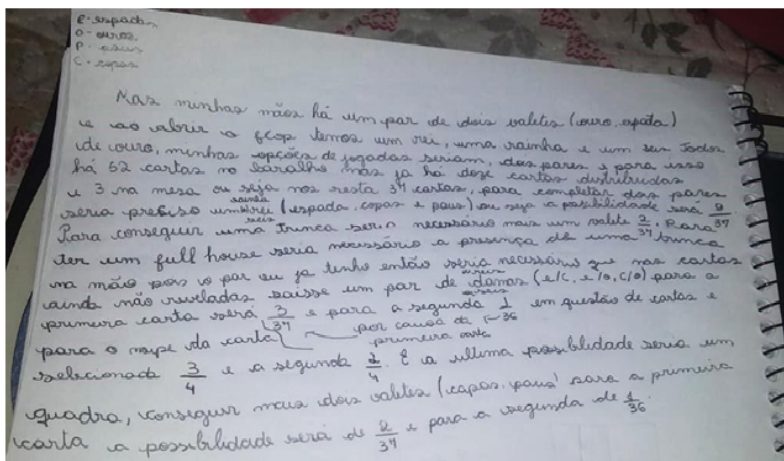 E - espadas
O - ouros
P - paus
C - copas
Nas minhas mãos há um par de dois valetes (ouro, espata)
e ao abrir o flop temos um rei, uma rainha e um seis todos
de ouro, minhas opções de jogadas seriam, dois pares e para isso
há 52 cartas no baralho, mas ja há doze cartas distribuidas
e 3 na mesa ou seja nos resta 37 cartas, para completar dois pares
seria preciso um (espada, copas e paus) ou seja a possibilidade será 9/37.
Para conseguir uma trinca seria necessário mais um valete 2/37. Para
ter um full house seria necessário a presença de uma trinca
na mão pois o par eu ja tenho então seria necessário que nas cartas
ainda não reveladas saisse um par de damas (e/c, e/o, c/o) para a
primeira carta será 3/37 e para a segunda 1/36 em questão de cartas e
por causa da
primeira carta
para o naipe da carta
selecionada 3/4 e a segunda 2/4. E a ultima possiblidade seria um
quadra, conseguir mais dois valetes (copas, paus) para a primeira
carta a possiblidade será de 2/37 e para a segunda de 1/36.